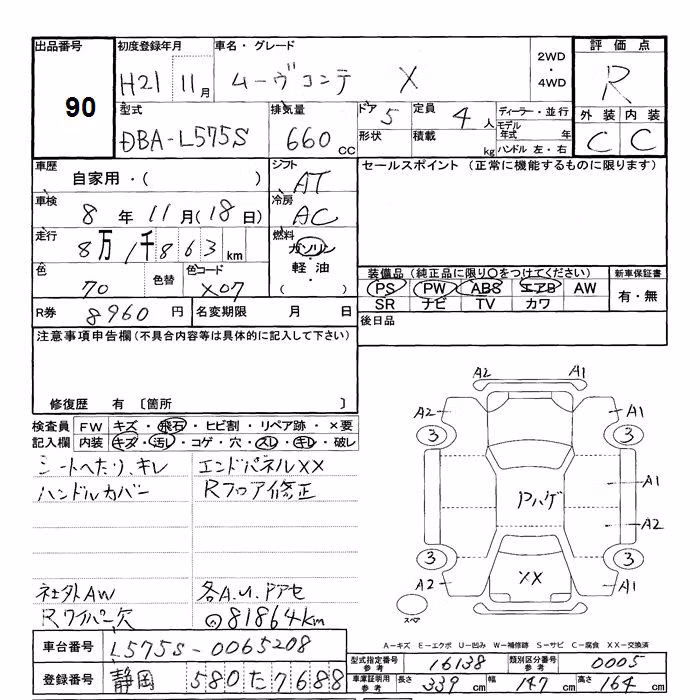 出品番号 初度登録年月 車名・グレード 評価点
90 H21 11月 ムーヴコンテ X 2WD・4WD R
型式 排気量 ドア 5 定員 4人 ディーラー・並行 外装 内装
DBA-L575S 660cc 形状 積載 kg モデル年式 年 C C
ハンドル 左・右
車歴 シフト セールスポイント (正常に機能するものに限ります)
自家用・( ) AT
車検 冷房
8年11月(18日) AC
走行 燃料
8万1千863km ガソリン・軽油・( )
色 色替 色コード 装備品(純正品に限り○をつけてください) 新車保証書
70 X07 PS PW ABS エアB AW 有・無
SR ナビ TV カワ
R券 8960円 名変期限 月 日 後日品
注意事項申告欄(不具合内容等は具体的に記入して下さい)
修復歴 有 〔箇所 〕
検査員 FW キズ・飛石・ヒビ割・リペア跡・×要
記入欄 内装 キズ・汚レ・コゲ・穴・スレ・キレ・破レ
シートヘたり、キレ エンドパネルXX
ハンドルカバー Rフロア修正
社外AW 各A.U.Pアセ
Rワイパー欠 ◎81864km
A2 A1
A2 A1
3 3
A1
Pハゲ
A2
3 3
A2 XX A1
スペア
A-キズ E-エクボ U-凹み W-補修跡 S-サビ C-腐食 XX-交換済
車台番号 L575S-0065208
型式指定番号参考 16138 類別区分番号参考 0005
登録番号 静岡 580 た 7688
車庫証明用参考 長さ 339cm 幅 147cm 高さ 164cm